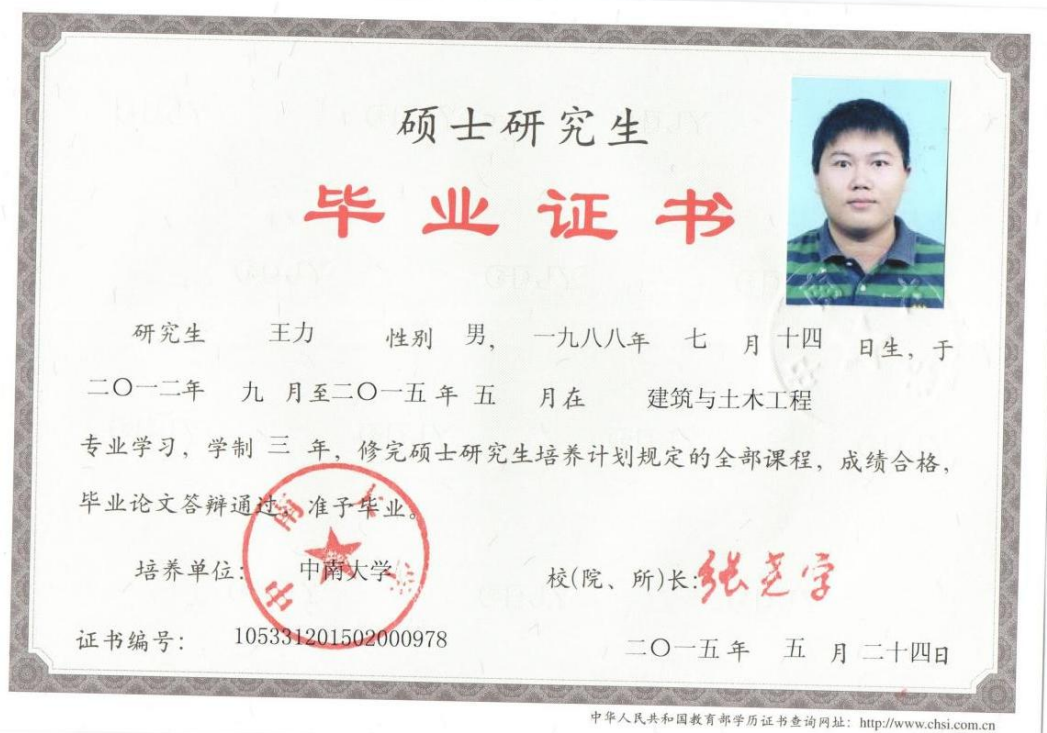 硕士研究生
毕业证书
研究生 王力 性别 男, 一九八八年 七 月 十四 日生, 于
二〇一二年 九 月至二〇一五年 五 月在 建筑与土木工程
专业学习, 学制 三 年, 修完硕士研究生培养计划规定的全部课程, 成绩合格,
毕业论文答辩通过, 准予毕业。
中南大学
培养单位: 中南大学 校(院、所)长: 张尧学
证书编号: 105331201502000978 二〇一五年 五 月 二十四日
中华人民共和国教育部学历证书查询网址: http://www.chsi.com.cn